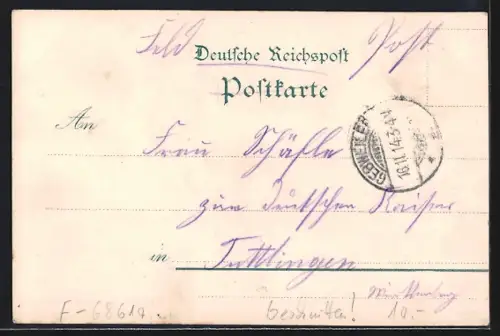 Feld Post
Deutsche Reichspost
Postkarte
GEBWEILER
16.11.14.3-4N
An Frau Schäfle
zum deutschen Kaiser
in Tuttlingen
Württemberg
F-68610 beschnitten! 10.-